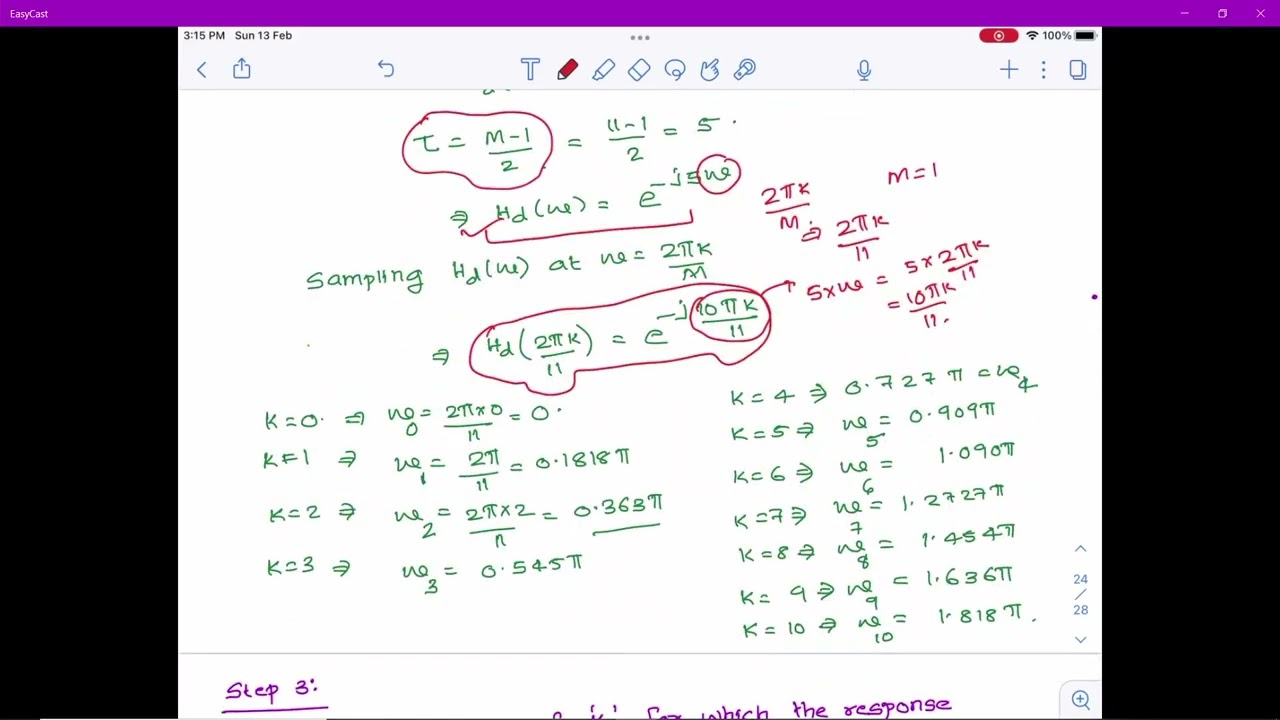 EasyCast
3:15 PM Sun 13 Feb
100%
T
τ = M-1/2 = 11-1/2 = 5.
⇒ Hd(ω) = e^-j5ω
M=1
2πk/M
⇒ 2πk/11
Sampling Hd(ω) at ω = 2πk/M
5×ω = 5×2πk/11
= 10πk/11.
⇒ Hd(2πk/11) = e^-j10πk/11
K=0. ⇒ ω0 = 2π×0/11 = 0.
K=1 ⇒ ω1 = 2π/11 = 0.1818π
K=2 ⇒ ω2 = 2π×2/11 = 0.363π
K=3 ⇒ ω3 = 0.545π
K=4 ⇒ 0.727π = ω4
K=5 ⇒ ω5 = 0.909π
K=6 ⇒ ω6 = 1.090π
K=7 ⇒ ω7 = 1.2727π
K=8 ⇒ ω8 = 1.454π
K= 9 ⇒ ω9 = 1.636π
K=10 ⇒ ω10 = 1.818π.
24
/
28
Step 3:
'k' for which the response